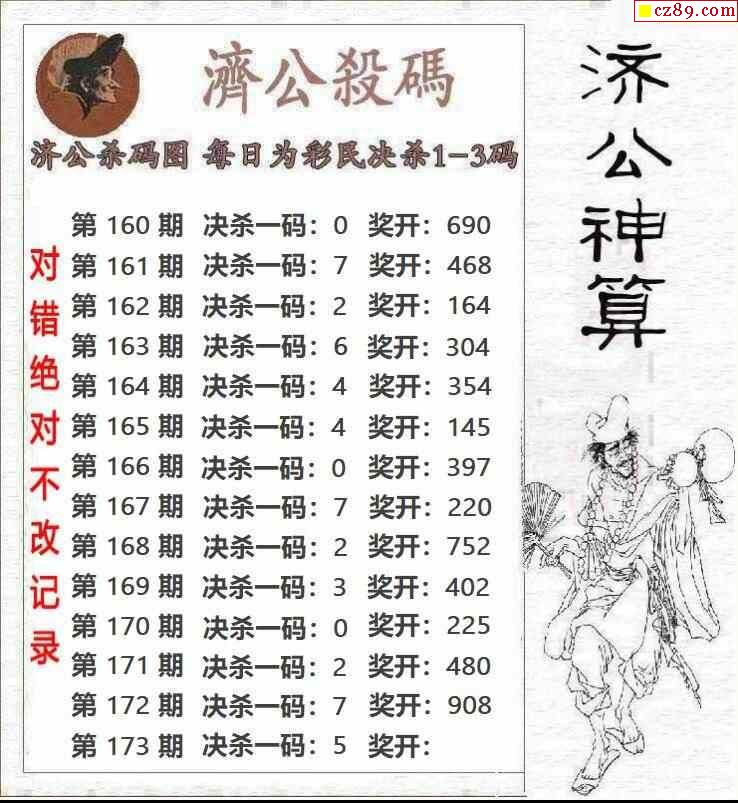 cz89.com
濟公殺碼
济公杀码图 每日为彩民决杀1-3码
第 160 期 决杀一码：0 奖开：690
第 161 期 决杀一码：7 奖开：468
第 162 期 决杀一码：2 奖开：164
第 163 期 决杀一码：6 奖开：304
第 164 期 决杀一码：4 奖开：354
第 165 期 决杀一码：4 奖开：145
第 166 期 决杀一码：0 奖开：397
第 167 期 决杀一码：7 奖开：220
第 168 期 决杀一码：2 奖开：752
第 169 期 决杀一码：3 奖开：402
第 170 期 决杀一码：0 奖开：225
第 171 期 决杀一码：2 奖开：480
第 172 期 决杀一码：7 奖开：908
第 173 期 决杀一码：5 奖开：
对错绝对不改记录
济公神算